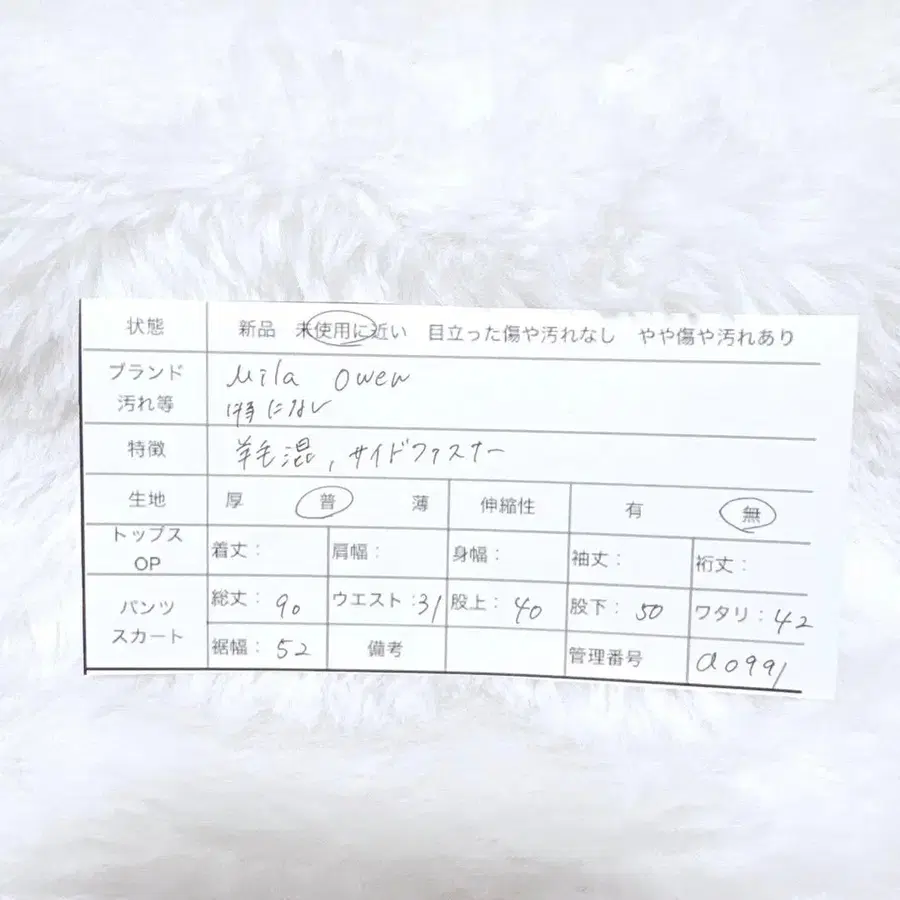 状態 新品 未使用に近い 目立った傷や汚れなし やや傷や汚れあり
ブランド Mila Owen
汚れ等 特になし
特徴 羊毛混, サイドファスナー
生地 厚 普 薄 伸縮性 有 無
トップス
OP 着丈: 肩幅: 身幅: 袖丈: 裄丈:
パンツ 総丈: 90 ウエスト: 31 股上: 40 股下: 50 ワタリ: 42
スカート 裾幅: 52 備考 管理番号 a0991